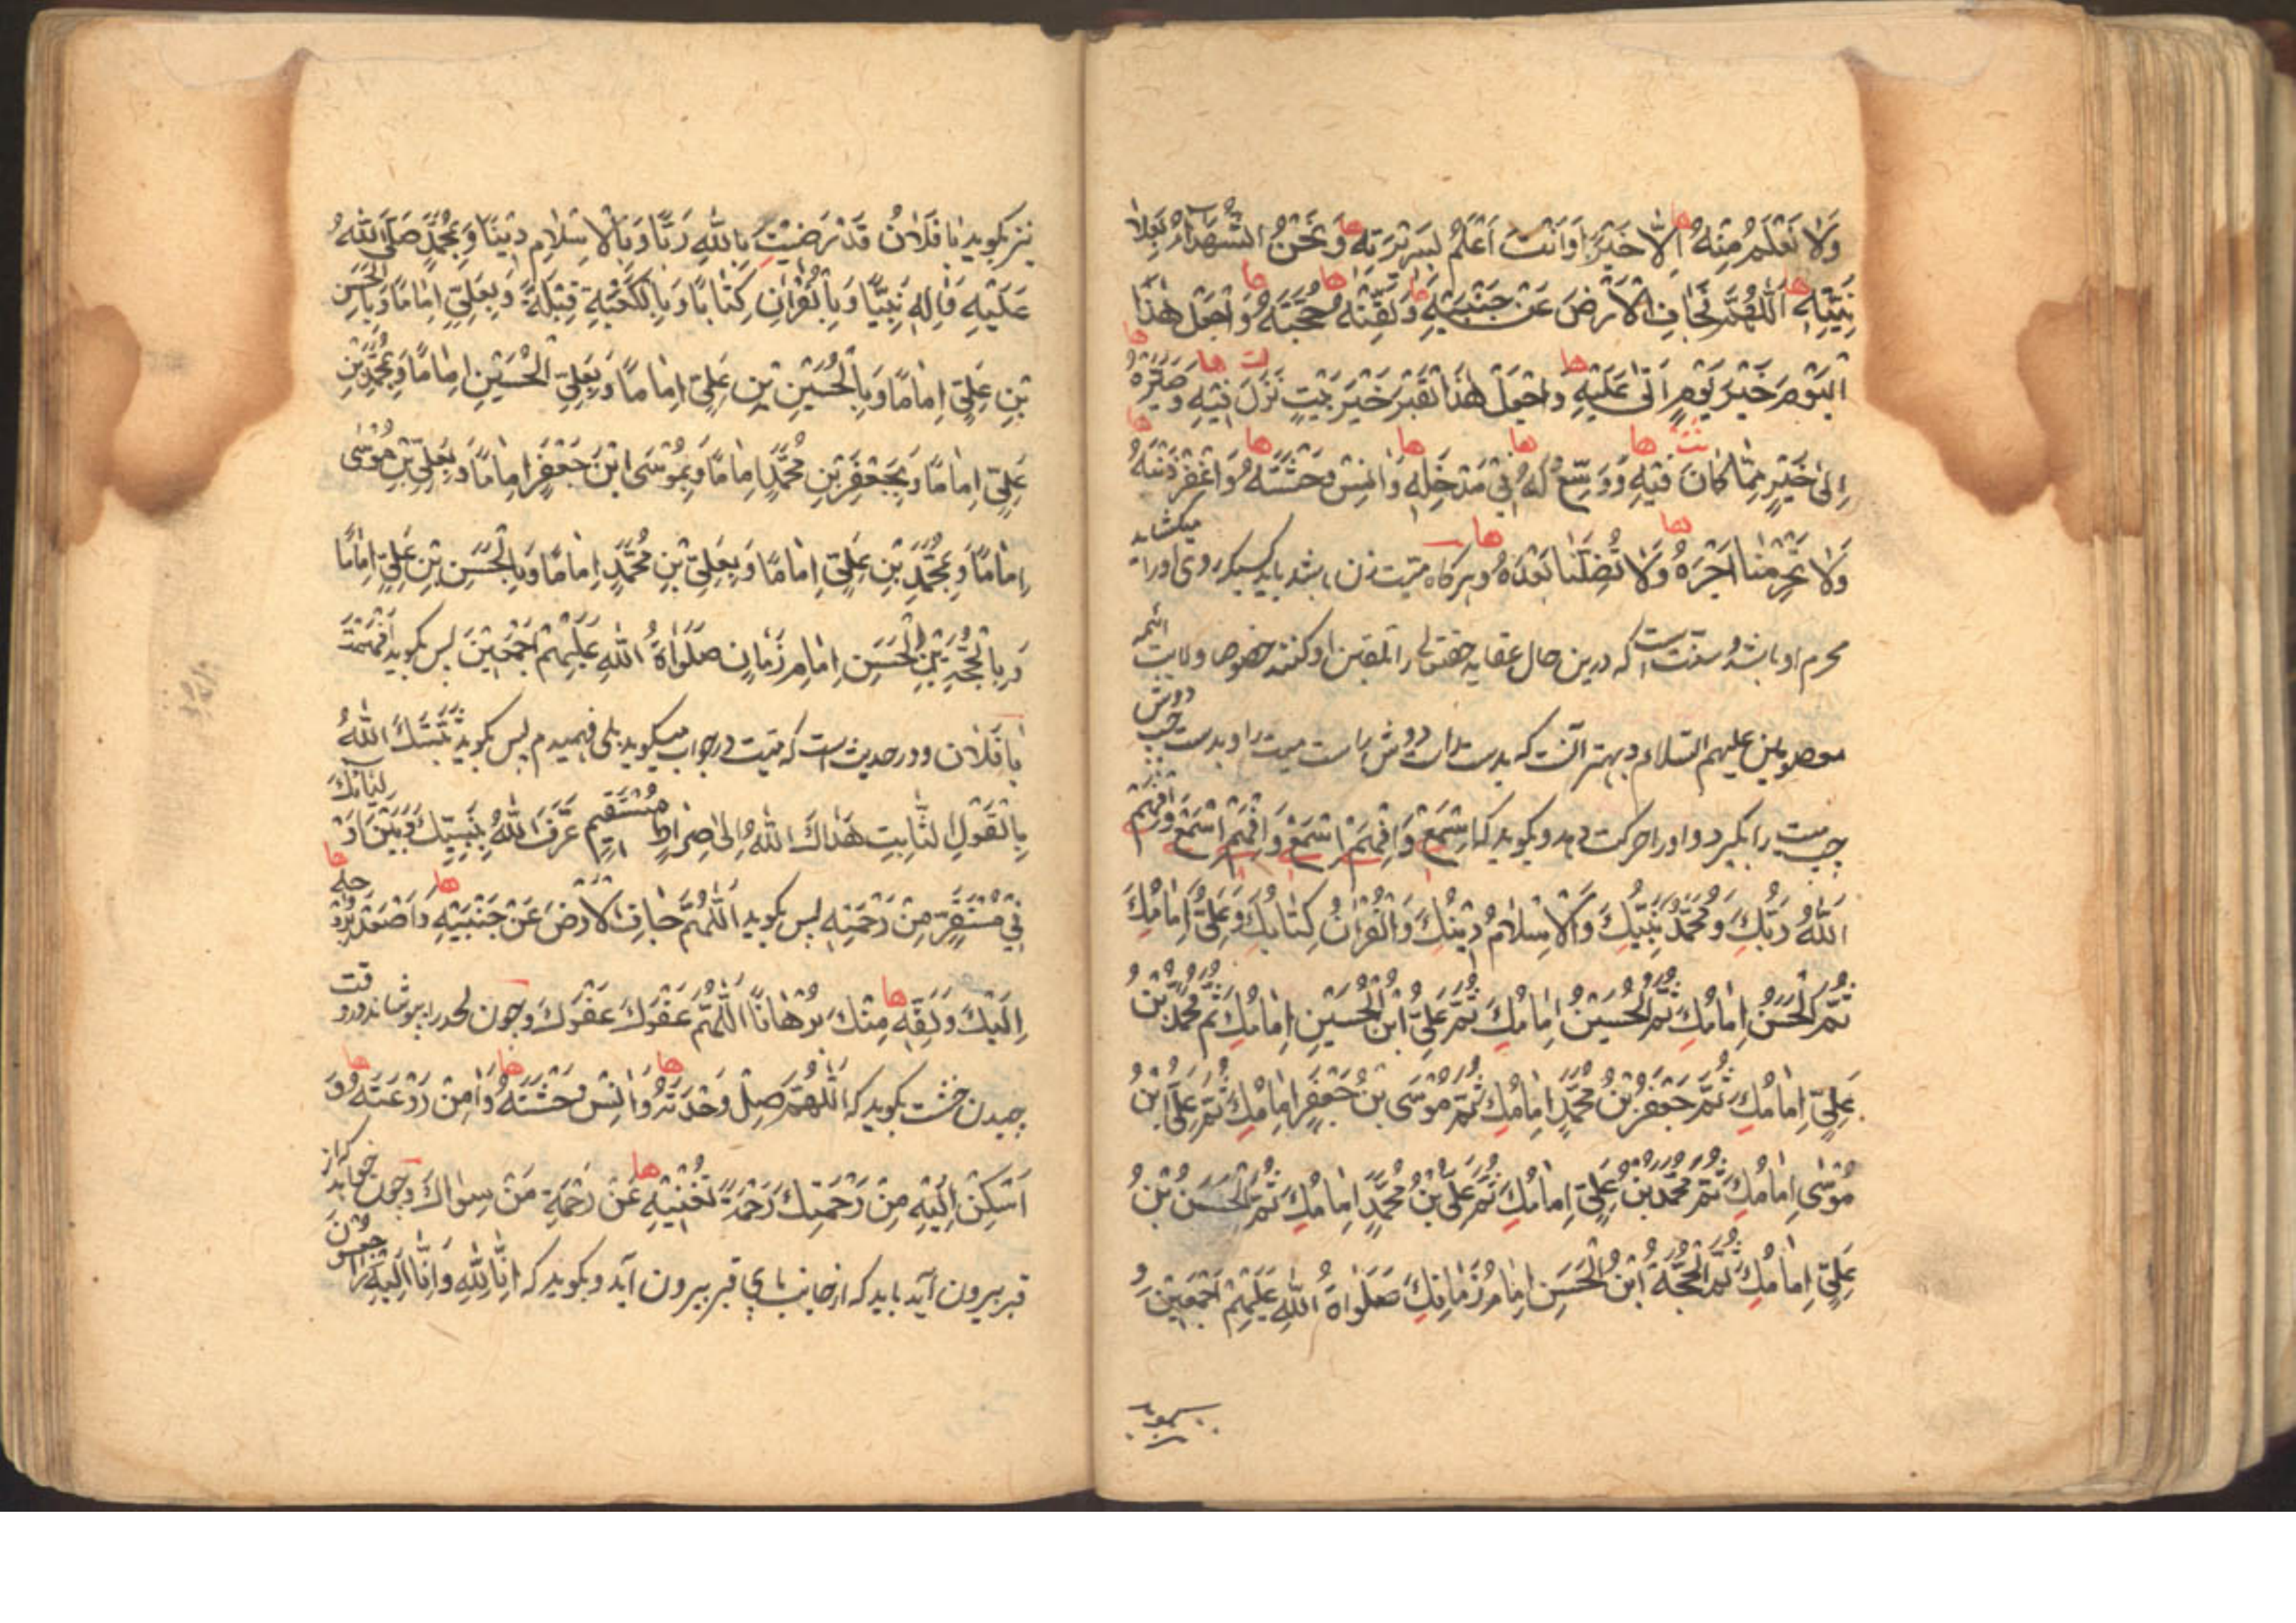 وَلا نَعْلَمُ مِنْهُ اِلّا خَيْرًا وَاَنْتَ اَعْلَمُ بِسَرِيْرَتِهِ وَنَحْنُ الشُّهَدَاءُ بِعَلانِ
نِيَّتِهِ اَللّهُمَّ جَافِ الْاَرْضَ عَنْ جَنْبَيْهِ وَلَقِّنْهُ حُجَّتَهُ وَاجْعَلْ هٰذَا
الْيَوْمَ خَيْرَ يَوْمٍ اَتٰى عَلَيْهِ وَاجْعَلْ هٰذَا الْقَبْرَ خَيْرَ بَيْتٍ نَزَلَ فِيْهِ وَصَيِّرْهُ
اِلىٰ خَيْرٍ مِمّا كانَ فِيْهِ وَوَسِّعْ لَهُ فِيْ مَدْخَلِهِ وَانِسْ وَحْشَتَهُ وَاغْفِرْ ذَنْبَهُ
وَلا تَحْرِمْنا اَجْرَهُ وَلا تُضِلَّنا بَعْدَهُ وهرکاه میت زن باشد باید کسیکه روی اورا میکشاید
محرم او باشد و سنت است که درین حال عقاید حقه را تلقین او کنند خصوصا ولایت ائمه
معصومین علیهم السلام و بهتر آنست که بدست راست دوش راست میت را و بدست چپ دوش
چپ میت را بگیرد و او را حرکت دهد و بگوید که اِسْمَعْ وَافْهَمْ اِسْمَعْ وَافْهَمْ اِسْمَعْ وَافْهَمْ
اَللهُ رَبُّكَ وَمُحَمَّدٌ نَبِيُّكَ وَالْاِسْلامُ دِيْنُكَ وَالْقُرْانُ كِتابُكَ وَعَلِيٌّ اِمامُكَ
ثُمَّ الْحَسَنُ اِمامُكَ ثُمَّ الْحُسَيْنُ اِمامُكَ ثُمَّ عَلِيُّ ابْنُ الْحُسَيْنِ اِمامُكَ ثُمَّ مُحَمَّدُ بْنُ
عَلِيٍّ اِمامُكَ ثُمَّ جَعْفَرُ بْنُ مُحَمَّدٍ اِمامُكَ ثُمَّ مُوْسَى بْنُ جَعْفَرٍ اِمامُكَ ثُمَّ عَلِيُّ ابْنُ
مُوْسٰى اِمامُكَ ثُمَّ مُحَمَّدُ بْنُ عَلِيٍّ اِمامُكَ ثُمَّ عَلِيُّ بْنُ مُحَمَّدٍ اِمامُكَ ثُمَّ الْحَسَنُ بْنُ
عَلِيٍّ اِمامُكَ ثُمَّ الْحُجَّةُ ابْنُ الْحَسَنِ اِمامُ زَمانِكَ صَلَواةُ اللهِ عَلَيْهِمْ اَجْمَعِيْنَ وَ
نیز بگوید یا فَلانُ قَدْ رَضِيْتَ بِاللهِ رَبًّا وَبِالْاِسْلامِ دِيْنًا وَبِمُحَمَّدٍ صَلَّى اللهُ
عَلَيْهِ وَالِهِ نَبِيًّا وَبِالْقُرْانِ كِتابًا وَبِالْكَعْبَةِ قِبْلَةً وَبِعَلِيٍّ اِمامًا وَبِالْحَسَنِ
بْنِ عَلِيٍّ اِمامًا وَبِالْحُسَيْنِ بْنِ عَلِيٍّ اِمامًا وَبِعَلِيِّ الْحُسَيْنِ اِمامًا وَبِمُحَمَّدِ بْنِ
عَلِيٍّ اِمامًا وَبِجَعْفَرِ بْنِ مُحَمَّدٍ اِمامًا وَبِمُوْسَى ابْنِ جَعْفَرٍ اِمامًا وَبِعَلِيِّ بْنِ مُوْسٰى
اِمامًا وَبِمُحَمَّدِ بْنِ عَلِيٍّ اِمامًا وَبِعَلِيِّ بْنِ مُحَمَّدٍ اِمامًا وَبِالْحَسَنِ بْنِ عَلِيٍّ اِمامًا
وَبِالْحُجَّةِ بْنِ الْحَسَنِ اِمامِ زَمانٍ صَلَواةُ اللهِ عَلَيْهِمْ اَجْمَعِيْنَ پس بگوید اَفَهِمْتَ
يا فَلان ودر حدیث است که میت در جواب میگوید بلی فهمیدم پس بگوید ثَبَّتَكَ اللهُ
بِالْقَوْلِ الثّابِتِ هَداكَ اللهُ اِلىٰ صِراطٍ مُسْتَقِيمٍ عَرَّفَ اللهُ بَيْنَكَ وَبَيْنَ اَوْلِيائِكَ
فِيْ مُسْتَقَرٍّ مِنْ رَحْمَتِهِ پس بگوید اَللّهُمَّ جافِ الْاَرْضَ عَنْ جَنْبَيْهِ وَاصْعَدْ بِرُوْحِهِ
اِلَيْكَ وَلَقِّهِ مِنْكَ بُرْهانًا اَللّهُمَّ عَفْوَكَ عَفْوَكَ وچون لحد را بپوشاند و در وقت
چیدن خشت بگوید که اَللّهُمَّ صِلْ وَحْدَتَهُ وَانِسْ وَحْشَتَهُ وَامِنْ رَوْعَتَهُ وَ
اَسْكِنْ اِلَيْهِ مِنْ رَحْمَتِكَ رَحْمَةً تُغْنِيْهِ عَنْ رَحْمَةِ مَنْ سِواكَ وچون خواهد که از
قبر بیرون آید باید که از جانب پای قبر بیرون آید و بگوید که اِنّا لِلّهِ وَاِنّا اِلَيْهِ راجِعُوْنَ